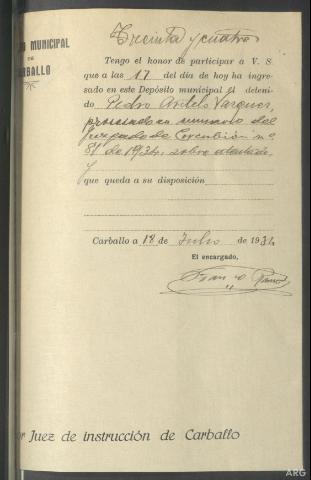 Treinta y cuatro
MUNICIPAL
DE
CARBALLO
Tengo el honor de participar a V. S.
que a las 17 del día de hoy ha ingre-
sado en este Depósito municipal el deteni-
do Pedro Vazquez,
procesado en sumario del
Juzgado de Corcubión nº
81 de 1934, sobre
y
que queda a su disposición
Carballo a 18 de Julio de 1934
El encargado,
Juez de instrucción de Carballo
ARG